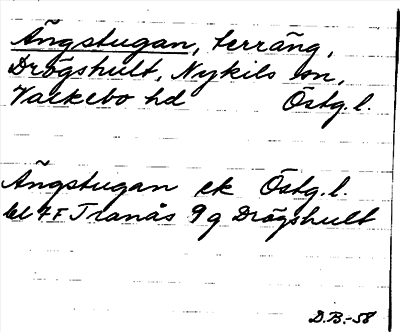 Ängstugan, terräng,
Drögshult, Nykils sn,
Valkebo hd Östg.l.
Ängstugan ek Östg.l.
bl 7F Tranås 9g Drögshult
D.B.-58